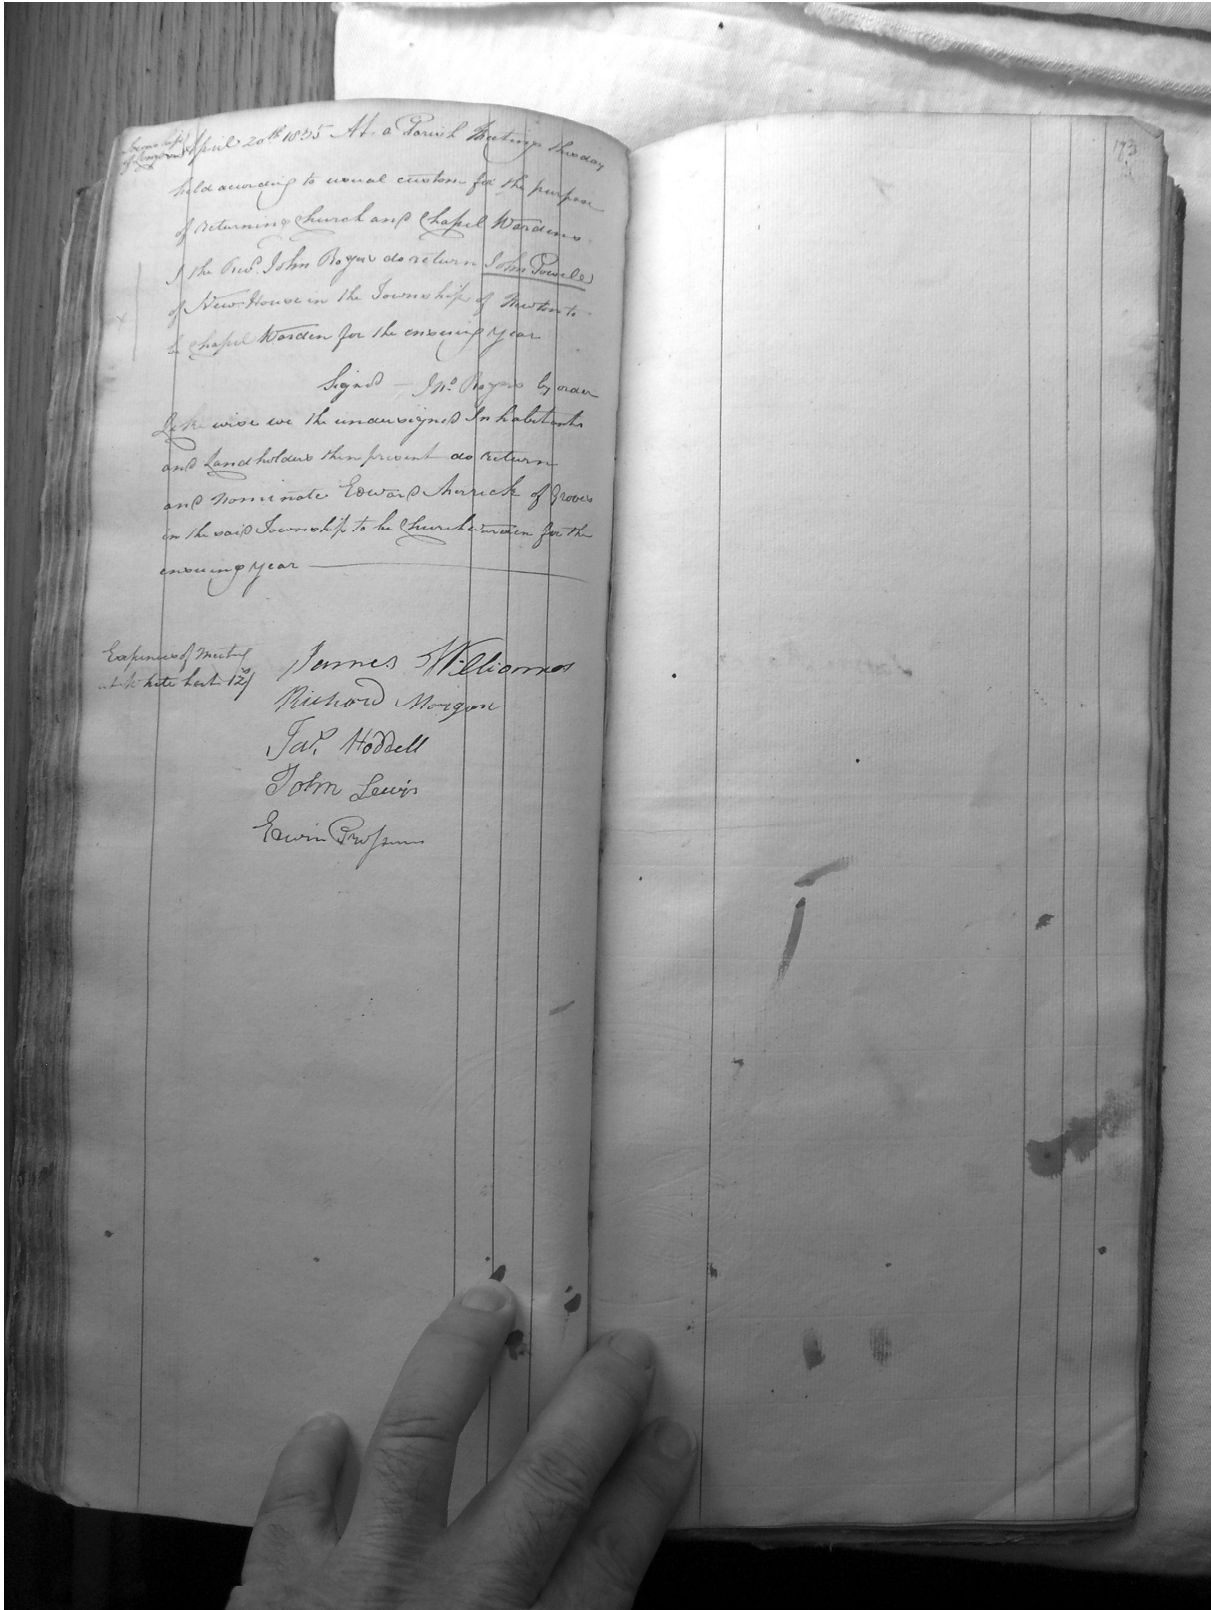 Township
of
April 20th 1835 At a Parish Meeting this day
held acording to usual custom for the purpose
of returning Church and Chapel Wardens
I the Revd. John Rogers do return John Powell
of New House in the Township of Newton to
be Chapel Warden for the ensuing year
Signed — Jno Rogers by order
Likewise we the undersigned Inhabitants
and Landholders then present do return
and nominate Edward Merrick of Groves
in the said Township to be Churchwarden for the
ensuing year
Expences of Meeting
White hart 12/
James Williams
Richard Morgan
Jas. Hoddell
John Lewis
Edwin Prosser
173